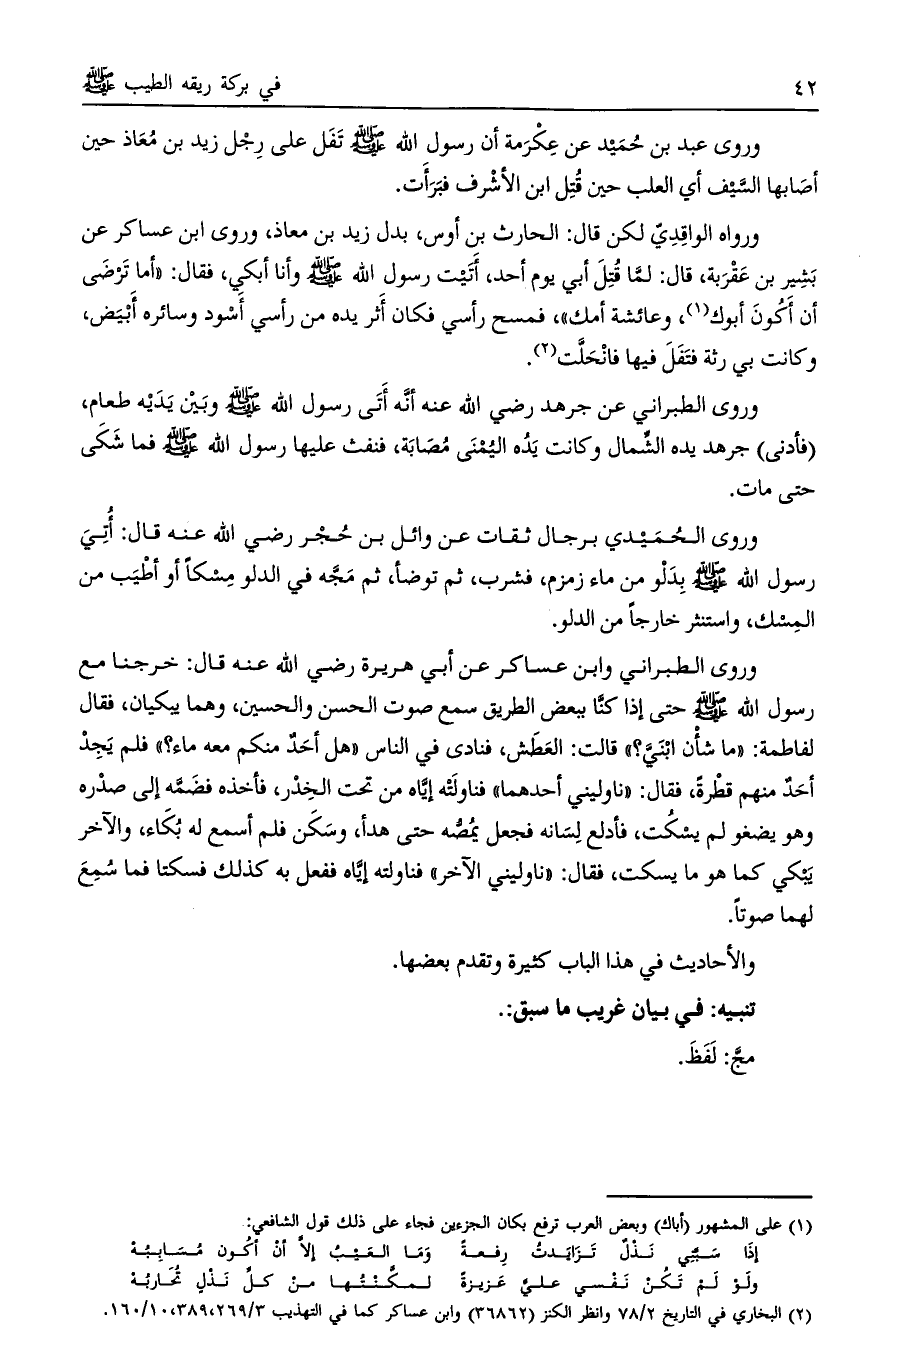 ٤٢ في بركة ريقه الطيب ﷺ
وروى عبد بن حُمَيْد عن عِكْرمة أن رسول الله ﷺ تَفَل على رِجْل زيد بن مُعَاذ حين
أصَابها السَّيْف أي العلب حين قُتِل ابن الأشْرف فبَرَأَت.
ورواه الواقِدِيّ لكن قال: الحارث بن أوس، بدل زيد بن معاذ، وروى ابن عساكر عن
بَشِير بن عَقْرَبة، قال: لمَّا قُتِلَ أبي يوم أحد، أَتَيْت رسول الله ﷺ وأنا أبكي، فقال: «أما تَرْضَى
أن أَكُونَ أبوك(١)، وعائشة أمك»، فمسح رأسي فكان أثر يده من رأسي أَسْود وسائره أَبْيَض،
وكانت بي رثة فتَفَلَ فيها فانْحَلَّت(٢).
وروى الطبراني عن جرهد رضي الله عنه أنَّه أَتَى رسول الله ﷺ وبَيْن يَدَيْه طعام،
(فأدنى) جرهد يده الشِّمال وكانت يَدُه اليُمْنَى مُصَابَة، فنفث عليها رسول الله ﷺ فما شَكَى
حتى مات.
وروى الحُمَيْدي برجال ثقات عن وائل بن حُجْر رضي الله عنه قال: أُتِيَ
رسول الله ﷺ بِدَلْو من ماء زمزم، فشرب، ثم توضأ، ثم مَجَّه في الدلو مِسْكاً أو أطْيَب من
المِسْك، واستنثر خارجاً من الدلو.
وروى الطبراني وابن عساكر عن أبي هريرة رضي الله عنه قال: خرجنا مع
رسول الله ﷺ حتى إذا كنَّا ببعض الطريق سمع صوت الحسن والحسين، وهما يبكيان، فقال
لفاطمة: «ما شأْن ابْنَيَّ؟» قالت: العَطَش، فنادى في الناس «هل أحَدٌ منكم معه ماء؟» فلم يَجِدْ
أحَدٌ منهم قطْرةً، فقال: «ناوليني أحدهما» فناولَتْه إيَّاه من تحت الخِدْر، فأخذه فضَمَّه إلى صدْره
وهو يضغو لم يسْكُت، فأدلع لِسَانه فجعل يمُصُّه حتى هدأ، وسَكَن فلم أسمع له بُكَاء، والآخر
يَبْكي كما هو ما يسكت، فقال: «ناوليني الآخر» فناولته إيَّاه ففعل به كذلك فسكتا فما سُمِعَ
لهما صوتاً.
والأحاديث في هذا الباب كثيرة وتقدم بعضها.
تنبيه: في بيان غريب ما سبق:.
مجَّ: لَفَظَ.
(١) على المشهور (أباك) وبعض العرب ترفع بكان الجزءين فجاء على ذلك قول الشافعي:
إذَا سَبَّنِي نَذْلٌ تَزَايَدتُ رِفعةً وَمَا العَيْبُ إلاَّ أنْ أكُون مُسَابِبُهْ
ولَوْ لَمْ تَكُنْ نَفْسي عليَّ عَزِيزةً لمكَّنْتُها منْ كلِّ نَذْلٍ تُحَارِبُهْ
(٢) البخاري في التاريخ ٧٨/٢ وانظر الكنز (٣٦٨٦٢) وابن عساكر كما في التهذيب ٢٦٩/٣،٣٨٩، ١٦٠/١٠.